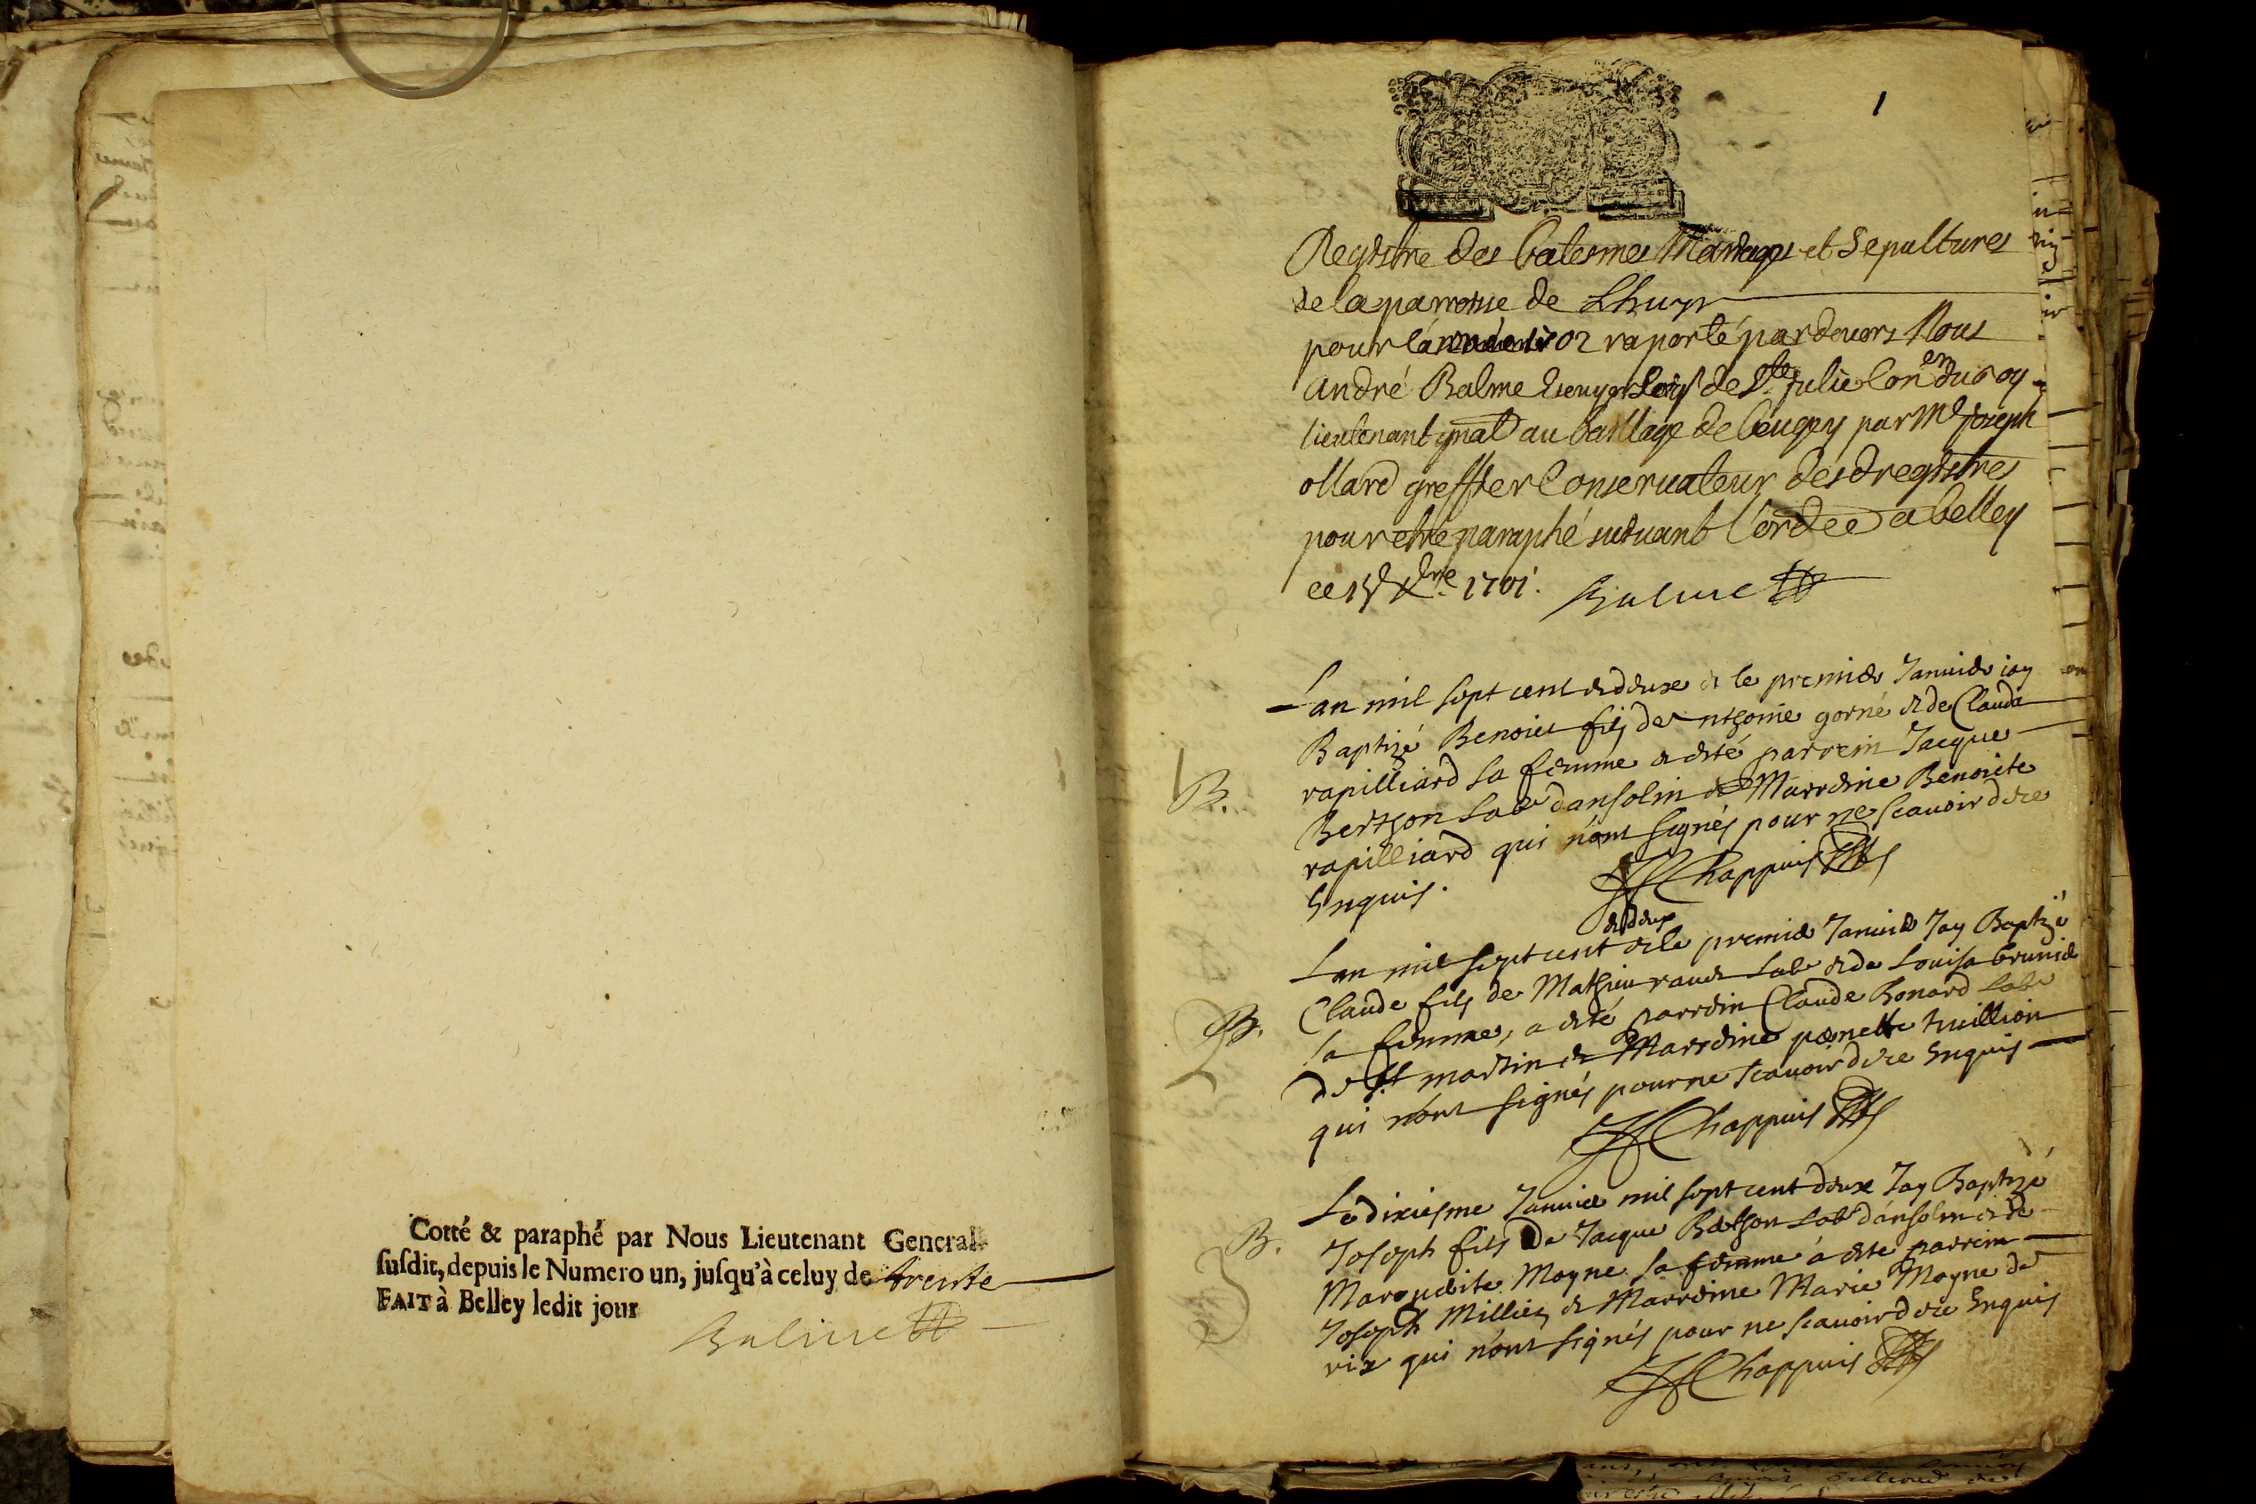 Cotté & paraphé par Nous Lieutenant General
susdit, depuis le Numero un, jusqu'à celuy de trente
FAIT à Belley ledit jour
Balme
1
Registre des batesmes Mariages et Sepultures
de la parroisse de Lhuys
pour lánnée 1702 raporté pardevers Nous
André Balme Escuyer Seigr de Ste Julie Coner du roy
lieutenant gnal au bailliage de beugey par Me Joseph
ollard greffier Conservateur desd registres
pour etre paraphé suivant lordce a belley
ce 15 xbre 1701. Balme
L'an mil sept cent et deux et le premier Janvier iay
B.
Baptizé Benoict fils de Anthoine gorné et de Clauda
rapilliard sa femme a esté parrein Jacque
Berthon labr dansolin et Marreine Benoicte
rapilliard qui n'ont signés pour ne scavoir de ce
Enquis. Chappuis
et deux
Lan mil sept cent et le premier Janvier Jay Baptizé
B.
Claude fils de Mathieu labr et de Louisa brunier
sa femme, a esté parrein Claude Bonard labr
de St martin et Marreine pernette trillion
qui n'ont signés pour ne scavoir de ce Enquis
Chappuis
Le dixiesme Janvier mil sept cent deux Jay Baptizé
B.
Joseph fils De Jacque Berthon labr dansolin et de
Marguerite Moyne sa femme a esté parrein
Joseph Milliez et Marreine Marie Moyne de
rix qui n'ont signés pour ne scavoir de ce Enquis
Chappuis